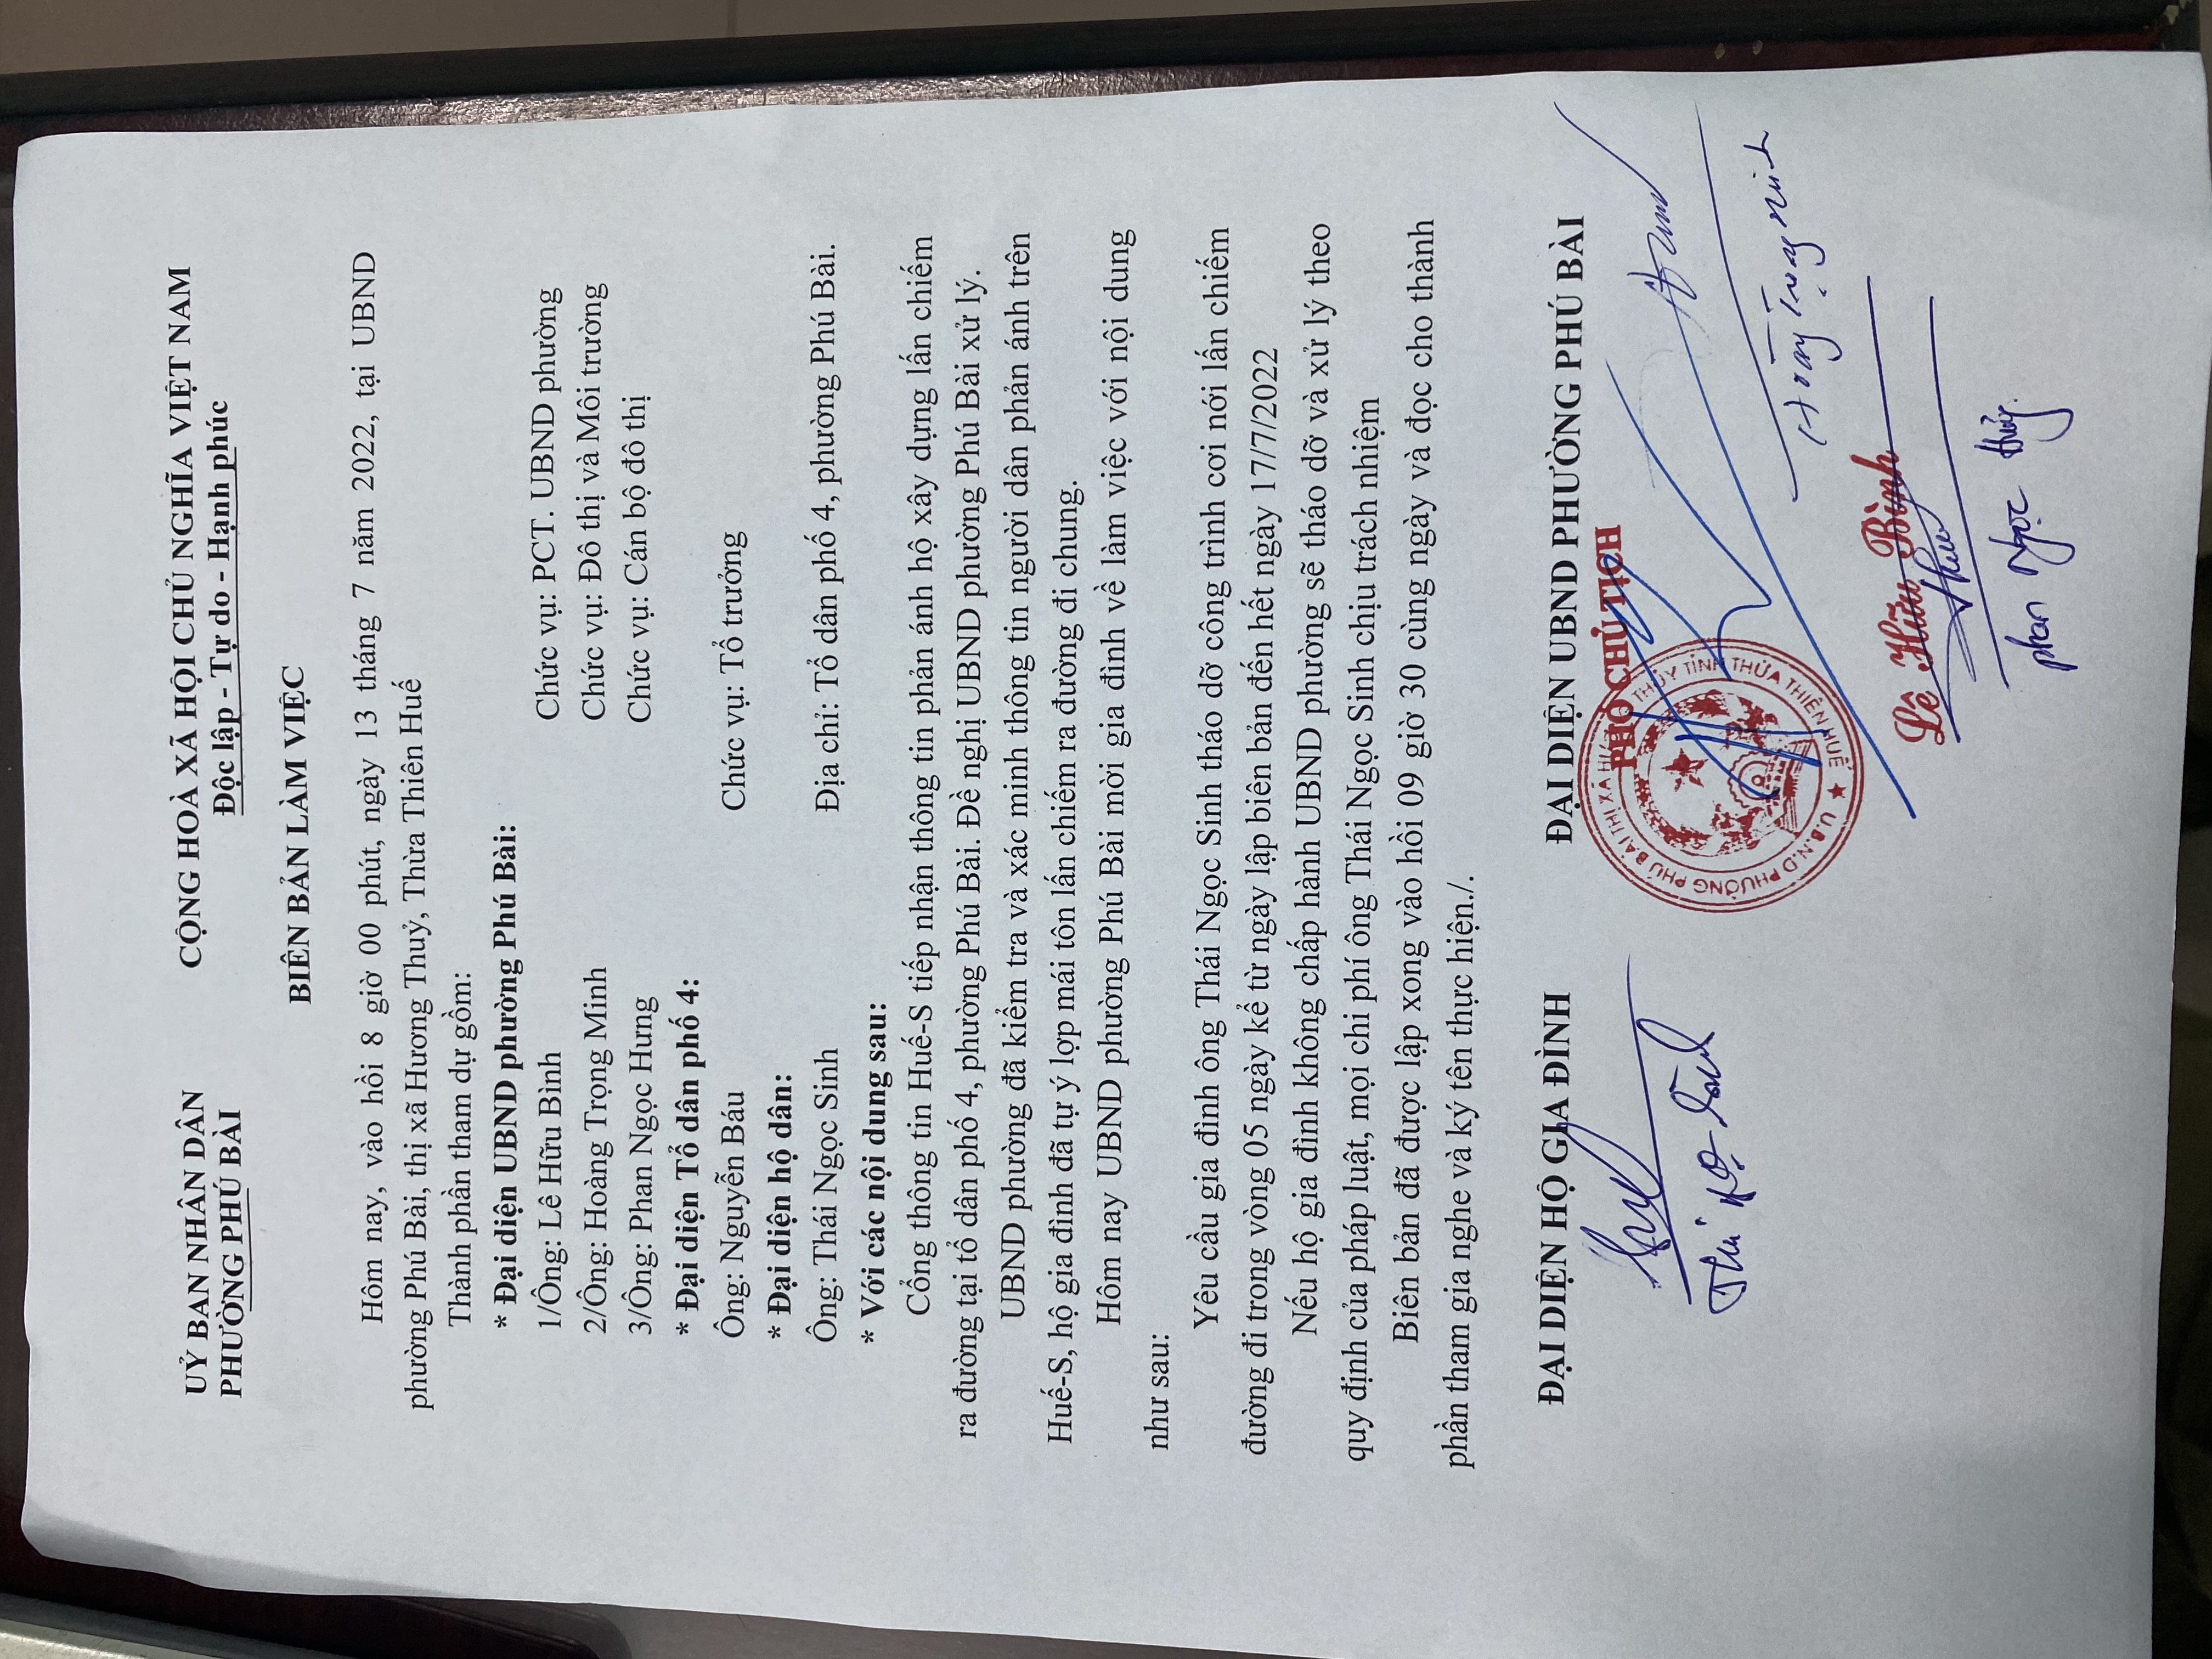 UỶ BAN NHÂN DÂN
PHƯỜNG PHÚ BÀI
CỘNG HOÀ XÃ HỘI CHỦ NGHĨA VIỆT NAM
Độc lập - Tự do - Hạnh phúc
BIÊN BẢN LÀM VIỆC
Hôm nay, vào hồi 8 giờ 00 phút, ngày 13 tháng 7 năm 2022, tại UBND
phường Phú Bài, thị xã Hương Thuỷ, Thừa Thiên Huế
Thành phần tham dự gồm:
* Đại diện UBND phường Phú Bài:
1/Ông: Lê Hữu Bình Chức vụ: PCT. UBND phường
2/Ông: Hoàng Trọng Minh Chức vụ: Đô thị và Môi trường
3/Ông: Phan Ngọc Hưng Chức vụ: Cán bộ đô thị
* Đại diện Tổ dân phố 4:
Ông: Nguyễn Báu Chức vụ: Tổ trưởng
* Đại diện hộ dân:
Ông: Thái Ngọc Sinh Địa chỉ: Tổ dân phố 4, phường Phú Bài.
* Với các nội dung sau:
Cổng thông tin Huế-S tiếp nhận thông tin phản ánh hộ xây dựng lấn chiếm
ra đường tại tổ dân phố 4, phường Phú Bài. Đề nghị UBND phường Phú Bài xử lý.
UBND phường đã kiểm tra và xác minh thông tin người dân phản ánh trên
Huế-S, hộ gia đình đã tự ý lợp mái tôn lấn chiếm ra đường đi chung.
Hôm nay UBND phường Phú Bài mời gia đình về làm việc với nội dung
như sau:
Yêu cầu gia đình ông Thái Ngọc Sinh tháo dỡ công trình cơi nới lấn chiếm
đường đi trong vòng 05 ngày kể từ ngày lập biên bản đến hết ngày 17/7/2022
Nếu hộ gia đình không chấp hành UBND phường sẽ tháo dỡ và xử lý theo
quy định của pháp luật, mọi chi phí ông Thái Ngọc Sinh chịu trách nhiệm
Biên bản đã được lập xong vào hồi 09 giờ 30 cùng ngày và đọc cho thành
phần tham gia nghe và ký tên thực hiện./.
ĐẠI DIỆN HỘ GIA ĐÌNH
ĐẠI DIỆN UBND PHƯỜNG PHÚ BÀI
PHÓ CHỦ TỊCH
U.B.N.D PHƯỜNG PHÚ BÀI THỊ XÃ HƯƠNG THỦY TỈNH THỪA THIÊN HUẾ
Hoàng Trọng Minh
Lê Hữu Bình
Phan Ngọc Hưng